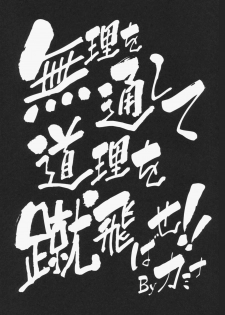 無理を
通して
道理を
蹴飛ばせ!!
Byカミナ